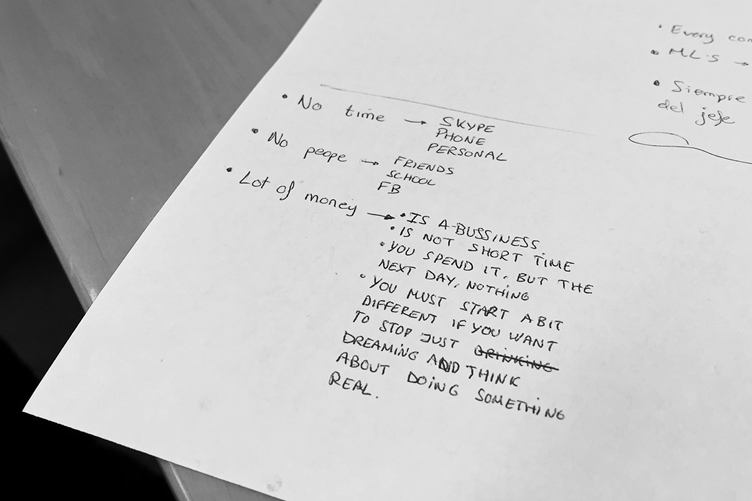 • Every
• ML'S →
• Siempre
del jefe
• No time → SKYPE
PHONE
PERSONAL
• No peope → FRIENDS
SCHOOL
FB
• Lot of money → • IS A BUSSINESS.
• IS NOT SHORT TIME
• YOU SPEND IT, BUT THE
NEXT DAY, NOTHING
• YOU MUST START A BIT
DIFFERENT IF YOU WANT
TO STOP JUST DRINKING
DREAMING AND THINK
ABOUT DOING SOMETHING
REAL.